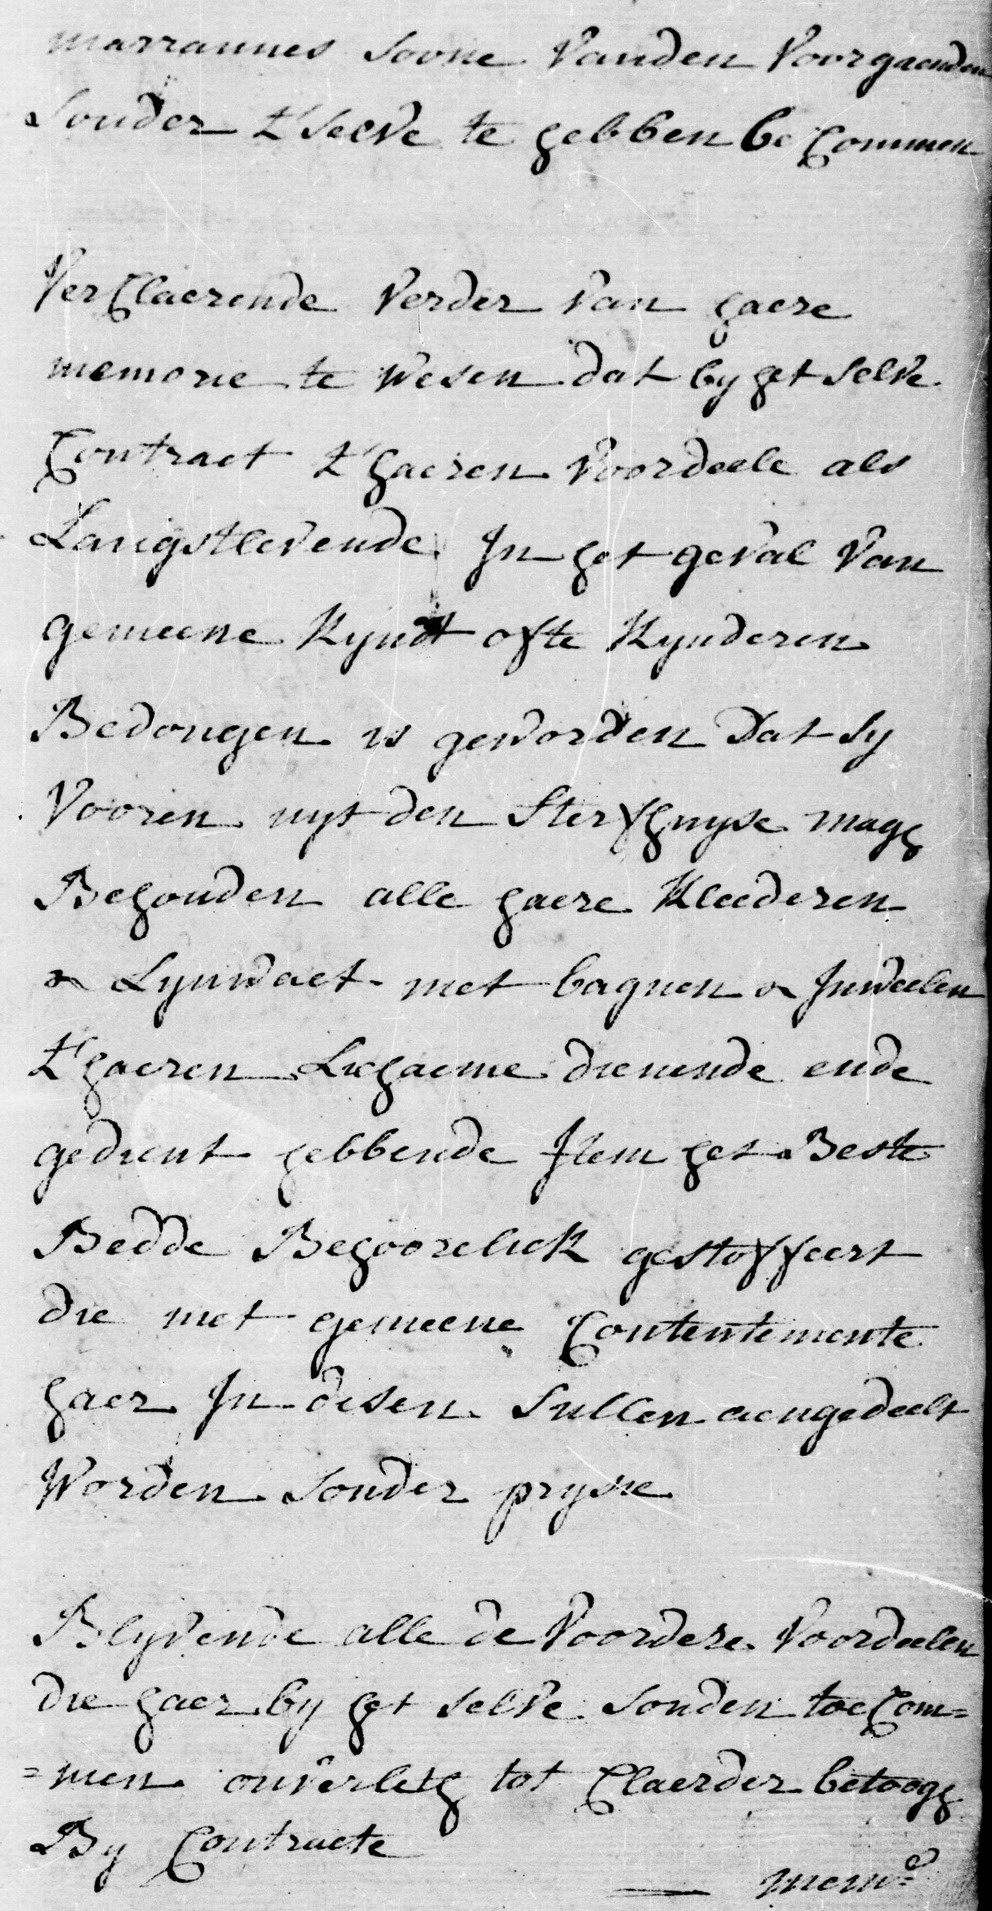 marrannes soone vanden voorgaenden
sonder t'selve te hebben becommen
Verclaerende verder van haere
memorie te wesen dat by het selve
Contract t'haeren voordeele als
Langstlevende In het geval van
gemeene Kyndt ofte Kynderen
Bedongen is geworden Dat sy
Vooren uyt den sterfhuyse magh
Behouden alle haere Kleederen
& Lynwaet met baguen & Juweelen
t'haeren Lichaeme dienende ende
gedient hebbende Item het Beste
Bedde Behoorelick gestoffeert
die met gemeene Contentemente
haer In desen sullen aengedeelt
Worden sonder prysie
Blyvende alle de voordere voordeelen
die haer by het selve souden toecom=
=men onverlet tot Claerder betoogh
By Contracte
— mem.e